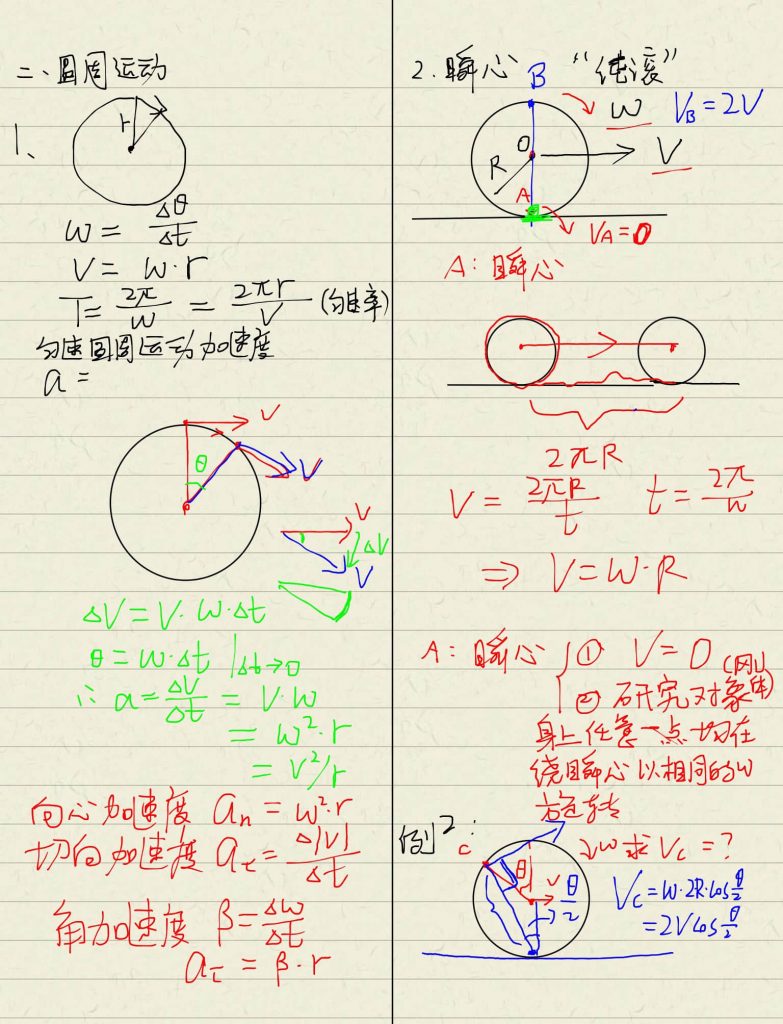 二、圆周运动
1、
r
ω = Δθ/Δt
V = ω·r
T = 2π/ω = 2πr/V (匀速率)
匀速圆周运动加速度
a =
V
θ
V
V
ΔV
V
ΔV = V·ω·Δt
θ = ω·Δt |Δt→0
∴ a = ΔV/Δt = V·ω
= ω²·r
= V²/r
向心加速度 aₙ = ω²·r
切向加速度 aτ = Δ|V|/Δt
角加速度 β = Δω/Δt
aτ = β·r
2. 瞬心 “纯滚”
B
ω
V_B = 2V
O
V
R
A
V_A = 0
A: 瞬心
2πR
V = 2πR/t t = 2π/ω
⇒ V = ω·R
A: 瞬心 ① V = 0
② 研究对象(刚体)
身上任意一点均在
绕瞬心以相同的ω
旋转
例2:
C
θ
V
θ/2
ω 求 V_C = ?
V_C = ω·2R·cos θ/2
= 2V cos θ/2